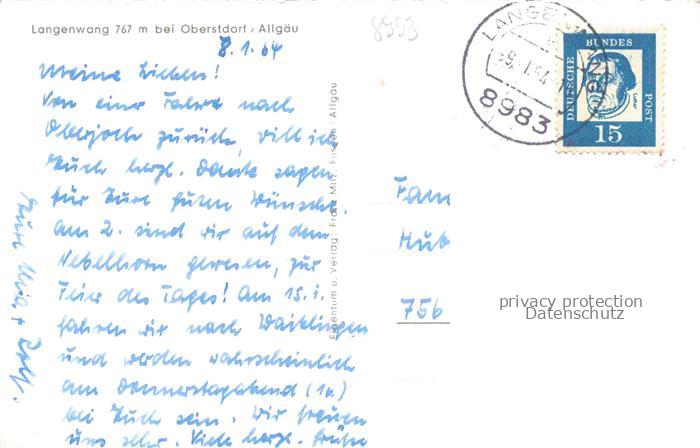 Langenwang 767 m bei Oberstdorf / Allgäu
8993
8.1.64
Meine Lieben!
Von einer Fahrt nach
Oberjoch zurück, will ich
Euch herzl. Dank sagen
für Eure guten Wünsche.
Am 2. sind wir auf dem
Nebelhorn gewesen, zur
Feier des Tages! Am 15.1.
fahren wir nach Waiblingen
und werden wahrscheinlich
am Donnerstagabend (16.)
bei Euch sein. Wir freuen
uns sehr. Viele herzl. Grüße
Eure + Rolf.
Eigentum u. Verlag: Franz Milz, Füssen / Allgäu
LANGENWANG
8983
DEUTSCHE BUNDES POST
Luther
15
Fam
Hub
756
privacy protection
Datenschutz